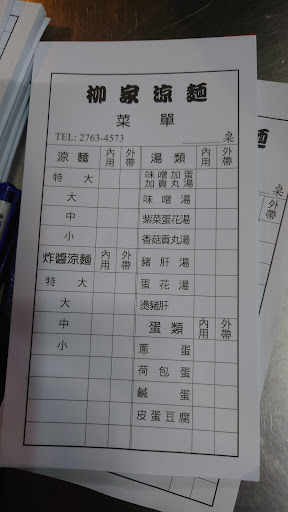 柳家涼麵
菜單
TEL: 2763-4573 桌
涼麵 內用 外帶 湯類 內用 外帶
特大 味噌加蛋加貢丸湯
大 味噌湯
中 紫菜蛋花湯
小 香菇貢丸湯
炸醬涼麵 內用 外帶 豬肝湯
特大 蛋花湯
大 燙豬肝
中 蛋類 內用 外帶
小 蔥蛋
荷包蛋
鹹蛋
皮蛋豆腐
麵
桌
外帶
內用
外帶